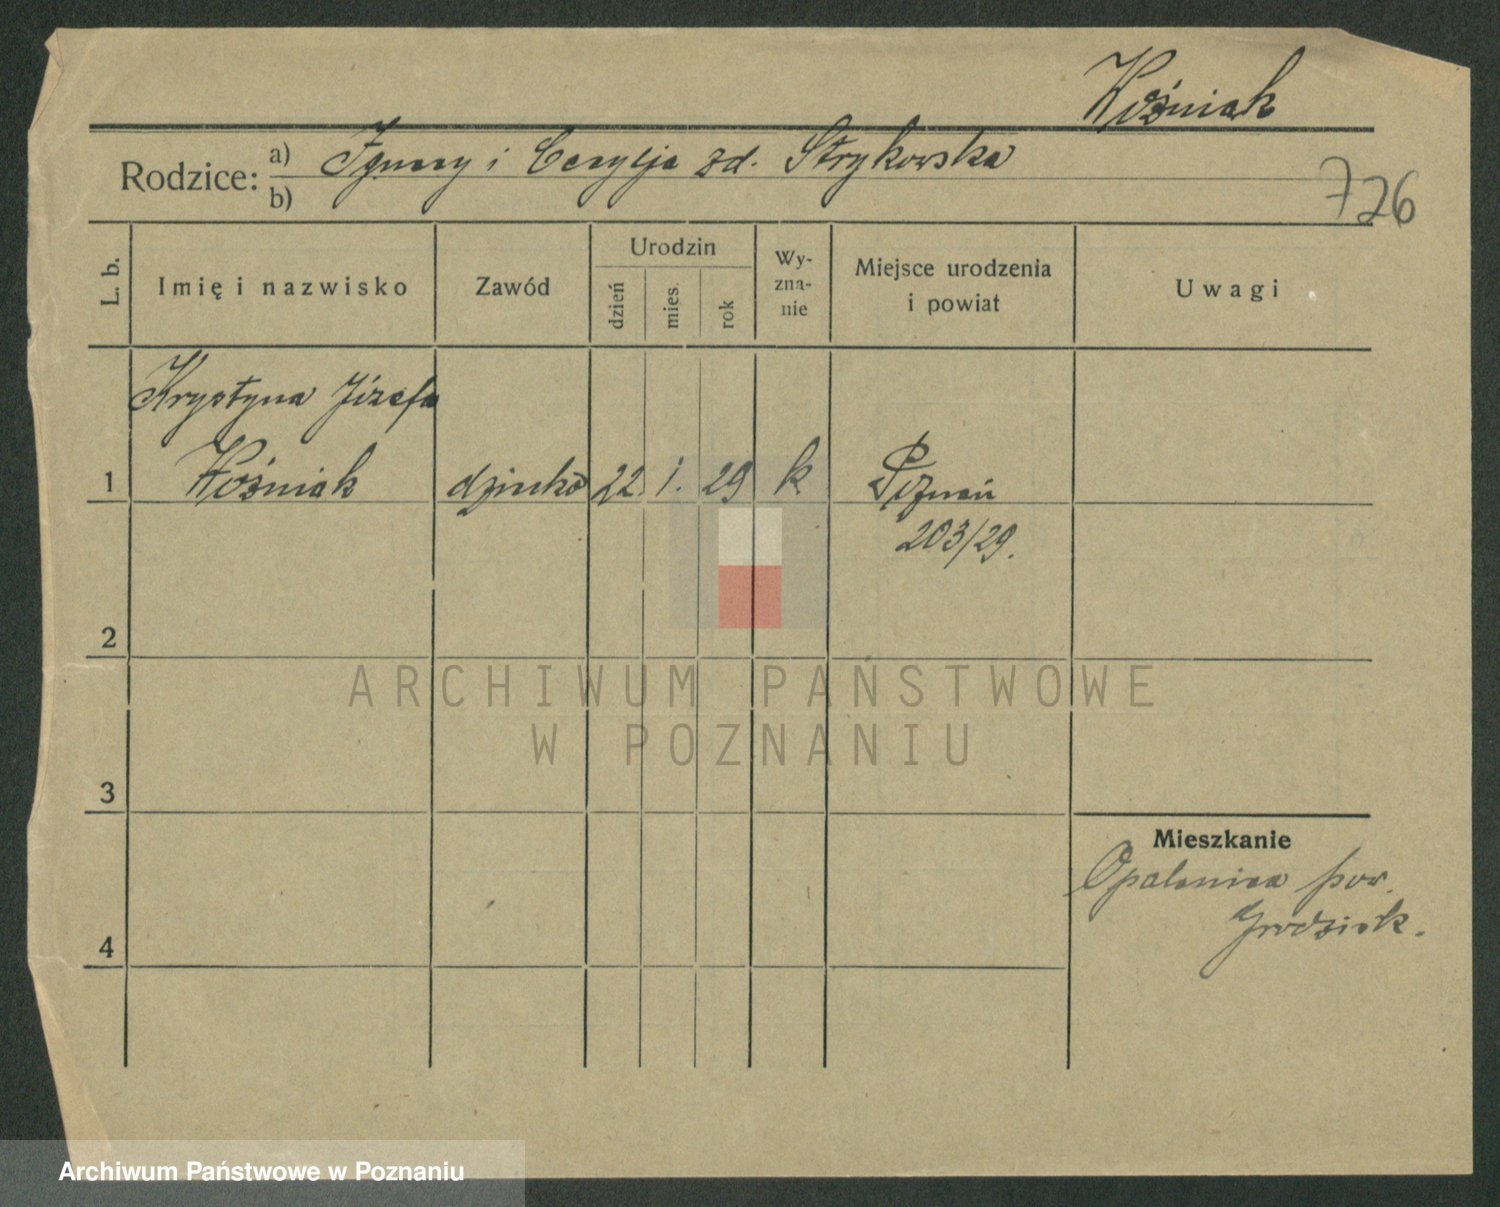 Woźniak
Rodzice: a) Ignacy i Cecylja zd. Strykowska
b)
726
L. b.
Imię i nazwisko
Zawód
Urodzin
dzień
mies.
rok
Wy-
zna-
nie
Miejsce urodzenia
i powiat
Uwagi
Krystyna Józefa
1 Woźniak dziecko 22. 1. 29 k Poznań
203/29.
2
3
4
Mieszkanie
Opalenica pow.
Grodzisk.
ARCHIWUM PAŃSTWOWE
W POZNANIU
Archiwum Państwowe w Poznaniu